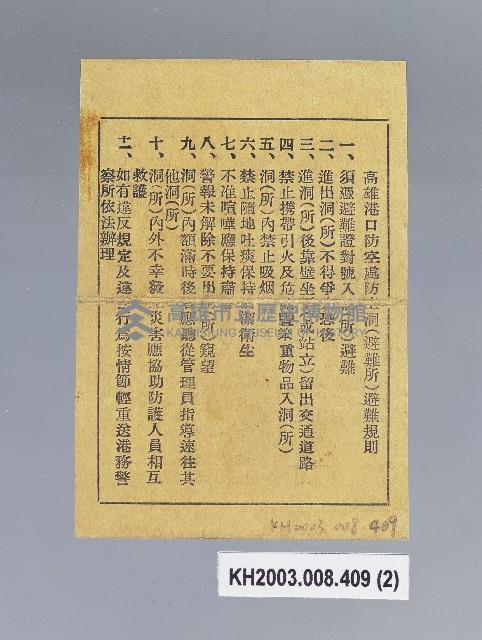 高雄港口防空處防空洞(避難所)避難規則
一、須憑避難證對號入洞(所)避難
二、進出洞(所)不得爭先恐後
三、進洞(所)後靠壁坐 或站立)留出交通道路
四、禁止攜帶引火及危 笨重物品入洞(所)
五、洞(所)內禁止吸烟
六、禁止隨地吐痰保持 潔衛生
七、不准喧嘩應保持肅
八、警報未解除不要出 (所)窺望
九、洞(所)內額滿時後 應聽從管理員指導速往其
他洞(所)
十、洞(所)內外不幸發 災害應協助防護人員相互
救護
十一、如有違反規定及違 行為按情節輕重送港務警
察所依法辦理
高雄市立歷史博物館
KAOHSIUNG MUSEUM OF HISTORY
KH2003.008.409
KH2003.008.409 (2)